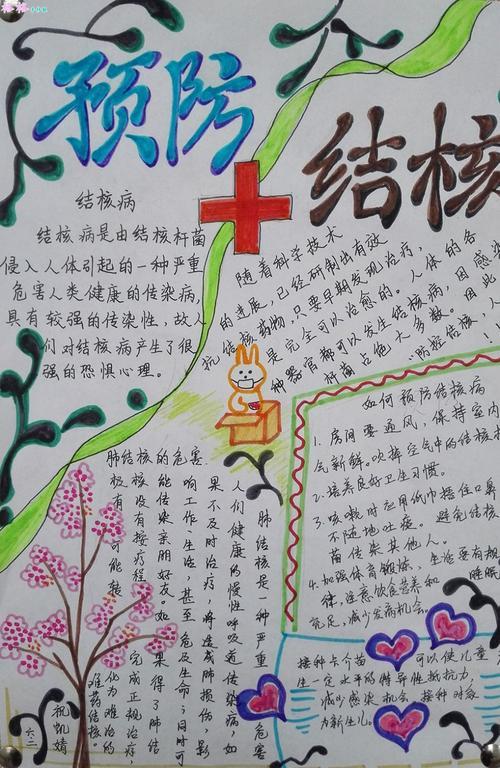 预防
结核
结核病
结核病是由结核杆菌
侵入人体引起的一种严重
危害人类健康的传染病,
具有较强的传染性,故人
们对结核病产生了很
强的恐惧心理。
随着科学技术
的进展,已经研制出有效
抗结核药物,只要早期发现治疗,
是完全可以治愈的。人体的各
种器官都可以发生结核病,因感染
杆菌占绝大多数。因此
防控结核
如何预防结核病
1.房间要通风,保持室内
气新鲜。吹掉空气中的结核
2.培养良好卫生习惯。
3.咳嗽时应用纸巾捂住口鼻
不随地吐痰。避免结核
菌传染其他人。
4.加强体育锻炼,生活要有规
律,注意饮食营养和睡眠
充足,减少发病机会。
接种卡介苗可以使儿童
生一定水平的特异性抵抗力,
减少感染机会,接种对象
为新生儿。
肺结核的危害
肺结核是一种严重危害
人们健康的慢性呼吸道传染病,如
果不及时治疗,将造成肺损伤,影
响工作生活,甚至危及生命;同时可
能传染亲朋好友。如果得了肺结
核没有按疗程完成正规治疗,
极有可能转化为难治的
难药结核。
祝凯婧
六.二